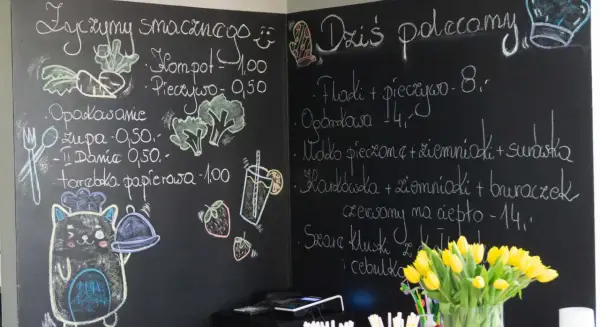 Życzymy smacznego
· Kompot - 1,00
· Pieczywo - 0,50
· Opakowanie
- zupa - 0,50,-
- II Danie 0,50,-
- torebka papierowa - 1,00
Dziś polecamy
· Flaki + pieczywo - 8,-
· Ogórkowa - 4,-
· Udko pieczone + ziemniaki + surówka
· Karkówka + ziemniaki + buraczek
czerwony na ciepło - 14,-
· Szare kluski z
i cebulką